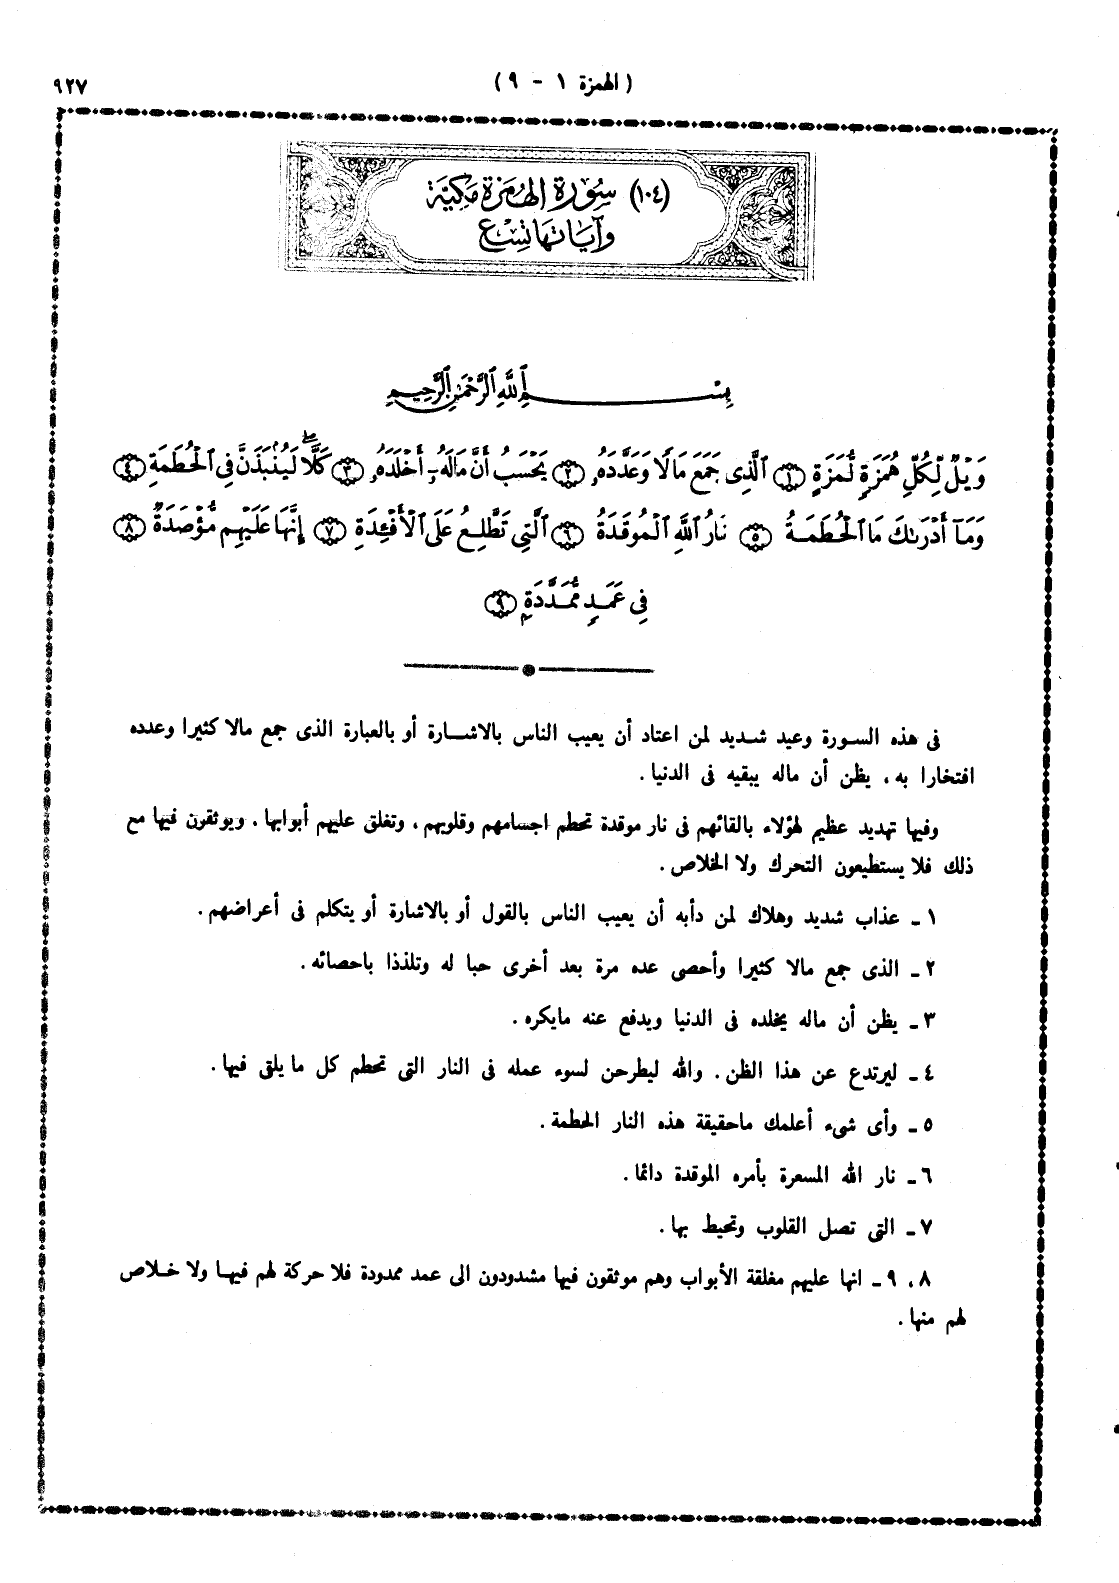 (الهمزة ١ - ٩)
٩٢٧
(١٠٤) سُورة الهُمَزة مَكيّة
وآياتها تِسْع
بِسْمِ ٱللَّهِ ٱلرَّحْمَٰنِ ٱلرَّحِيمِ
وَيْلٌ لِّكُلِّ هُمَزَةٍ لُّمَزَةٍ ١ ٱلَّذِى جَمَعَ مَالًا وَعَدَّدَهُۥ ٢ يَحْسَبُ أَنَّ مَالَهُۥٓ أَخْلَدَهُۥ ٣ كَلَّاۖ لَيُنۢبَذَنَّ فِى ٱلْحُطَمَةِ ٤
وَمَآ أَدْرَىٰكَ مَا ٱلْحُطَمَةُ ٥ نَارُ ٱللَّهِ ٱلْمُوقَدَةُ ٦ ٱلَّتِى تَطَّلِعُ عَلَى ٱلْأَفْـِٔدَةِ ٧ إِنَّهَا عَلَيْهِم مُّؤْصَدَةٌ ٨
فِى عَمَدٍ مُّمَدَّدَةٍۭ ٩
فى هذه السورة وعيد شديد لمن اعتاد أن يعيب الناس بالاشارة أو بالعبارة الذى جمع مالا كثيرا وعدده
افتخارا به، يظن أن ماله يبقيه فى الدنيا.
وفيها تهديد عظيم لهؤلاء بالقائهم فى نار موقدة تحطم اجسامهم وقلوبهم، وتغلق عليهم أبوابها، ويوثقون فيها مع
ذلك فلا يستطيعون التحرك ولا الخلاص.
١ ـ عذاب شديد وهلاك لمن دأبه أن يعيب الناس بالقول أو بالاشارة أو يتكلم فى أعراضهم.
٢ ـ الذى جمع مالا كثيرا وأحصى عده مرة بعد أخرى حبا له وتلذذا باحصائه.
٣ ـ يظن أن ماله يخلده فى الدنيا ويدفع عنه مايكره.
٤ ـ ليرتدع عن هذا الظن. والله ليطرحن لسوء عمله فى النار التى تحطم كل مايلقى فيها.
٥ ـ وأى شىء أعلمك ماحقيقة هذه النار الحطمة.
٦ ـ نار الله المسعرة بأمره الموقدة دائما.
٧ ـ التى تصل القلوب وتحيط بها.
٨، ٩ ـ انها عليهم مغلقة الأبواب وهم موثقون فيها مشدودون الى عمد ممدودة فلا حركة لهم فيها ولا خلاص
لهم منها.